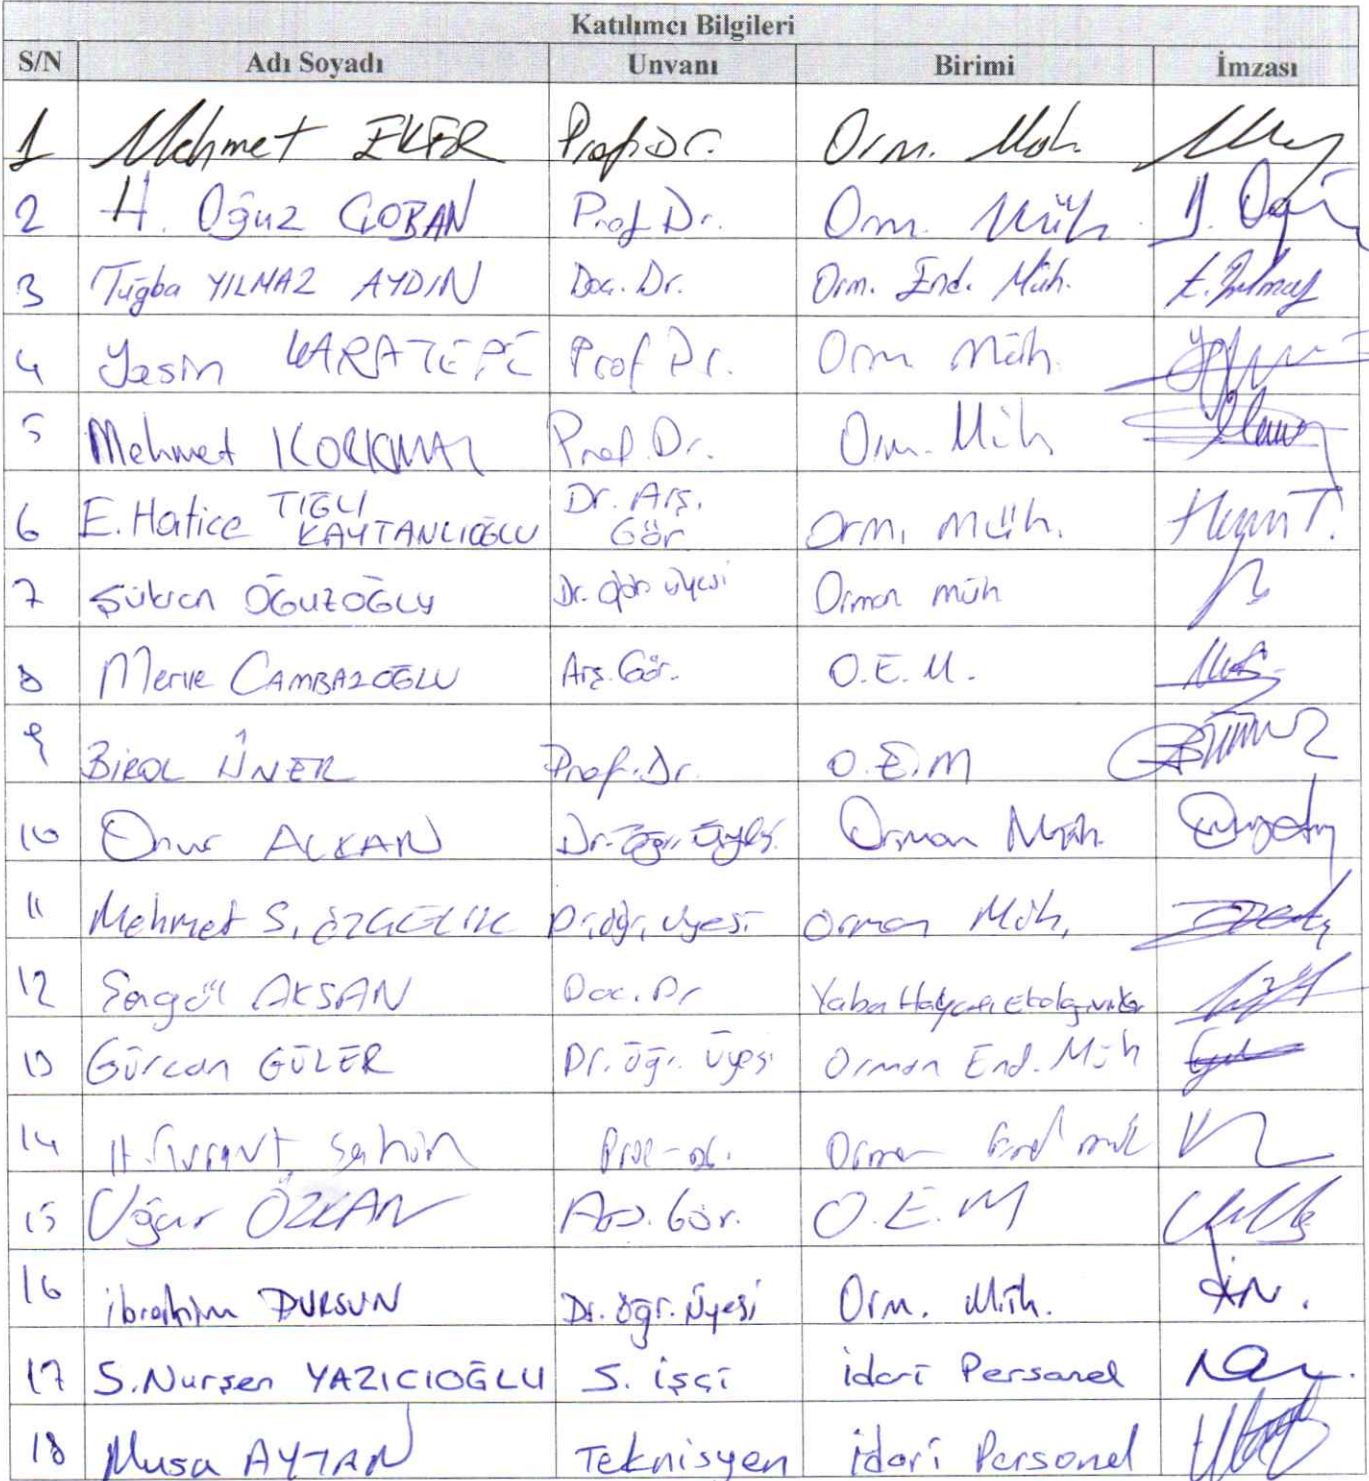 Katılımcı Bilgileri
S/N Adı Soyadı Unvanı Birimi İmzası
1 Mehmet EKER Prof.Dr. Orm. Müh.
2 H. Oğuz ÇOBAN Prof Dr. Orm. Müh. H. Oğuz
3 Tuğba YILMAZ AYDIN Doç. Dr. Orm. End. Müh. t. Yılmaz
4 Yasin KARATEPE Prof Dr. Orm Müh.
5 Mehmet KORKMAZ Prof. Dr. Orm. Müh
6 E. Hatice TIĞLI KAYTANLIOĞLU Dr. Arş. Gör Orm. Müh.
7 Şükran OĞUZOĞLU Dr. Öğr üyesi Orman müh
8 Merve CAMBAZOĞLU Arş. Gör. O.E.M.
9 BİROL ÜNER Prof. Dr. O.E.M
10 Onur ALKAN Dr. Öğr. Üyesi Orman Müh.
11 Mehmet S. ÖZÇELİK Dr. öğr. üyesi Orman Müh.
12 AKSAN Doc. Dr Yaban Hayatı
13 Gürcan GÜLER Dr. öğr. üyesi Orman End. Müh
14 Şahin Orman End müh
15 Uğur ÖZKAN Arş. Gör. O.E.M
16 ibrahim DURSUN Dr. öğr. üyesi Orm. Müh.
17 S.Nurşen YAZICIOĞLU S. işçi idari Personel
18 Musa AYTAN Teknisyen idari Personel